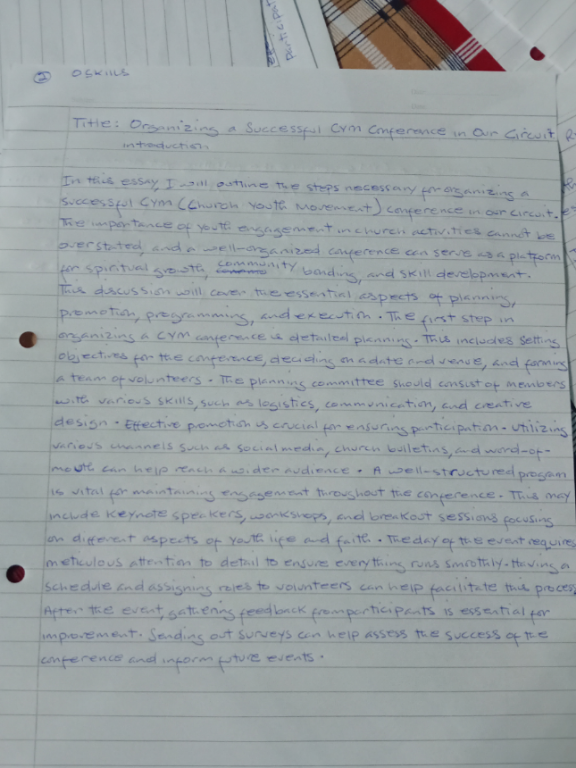 ② OSKILLS
Title: Organizing a Successful CYM Conference in Our Circuit
introduction
In this essay I will outline the steps necessary for organizing a
successful CYM (Church Youth Movement) conference in our circuit.
The importance of youth engagement in church activities cannot be
overstated, and a well-organized conference can serve as a platform
for spiritual growth, community bonding, and skill development.
This discussion will cover the essential aspects of planning,
promotion, programming, and execution. The first step in
organizing a CYM conference is detailed planning. This includes setting
objectives for the conference, deciding on a date and venue, and forming
a team of volunteers. The planning committee should consist of members
with various skills, such as logistics, communication, and creative
design. Effective promotion is crucial for ensuring participation. Utilizing
various channels such as social media, church bulletins, and word-of-
mouth can help reach a wider audience. A well-structured program
is vital for maintaining engagement throughout the conference. This may
include keynote speakers, workshops, and breakout sessions focusing
on different aspects of youth life and faith. The day of the event requires
meticulous attention to detail to ensure everything runs smoothly. Having a
schedule and assigning roles to volunteers can help facilitate this process
After the event, gathering feedback from participants is essential for
improvement. Sending out surveys can help assess the success of the
conference and inform future events.